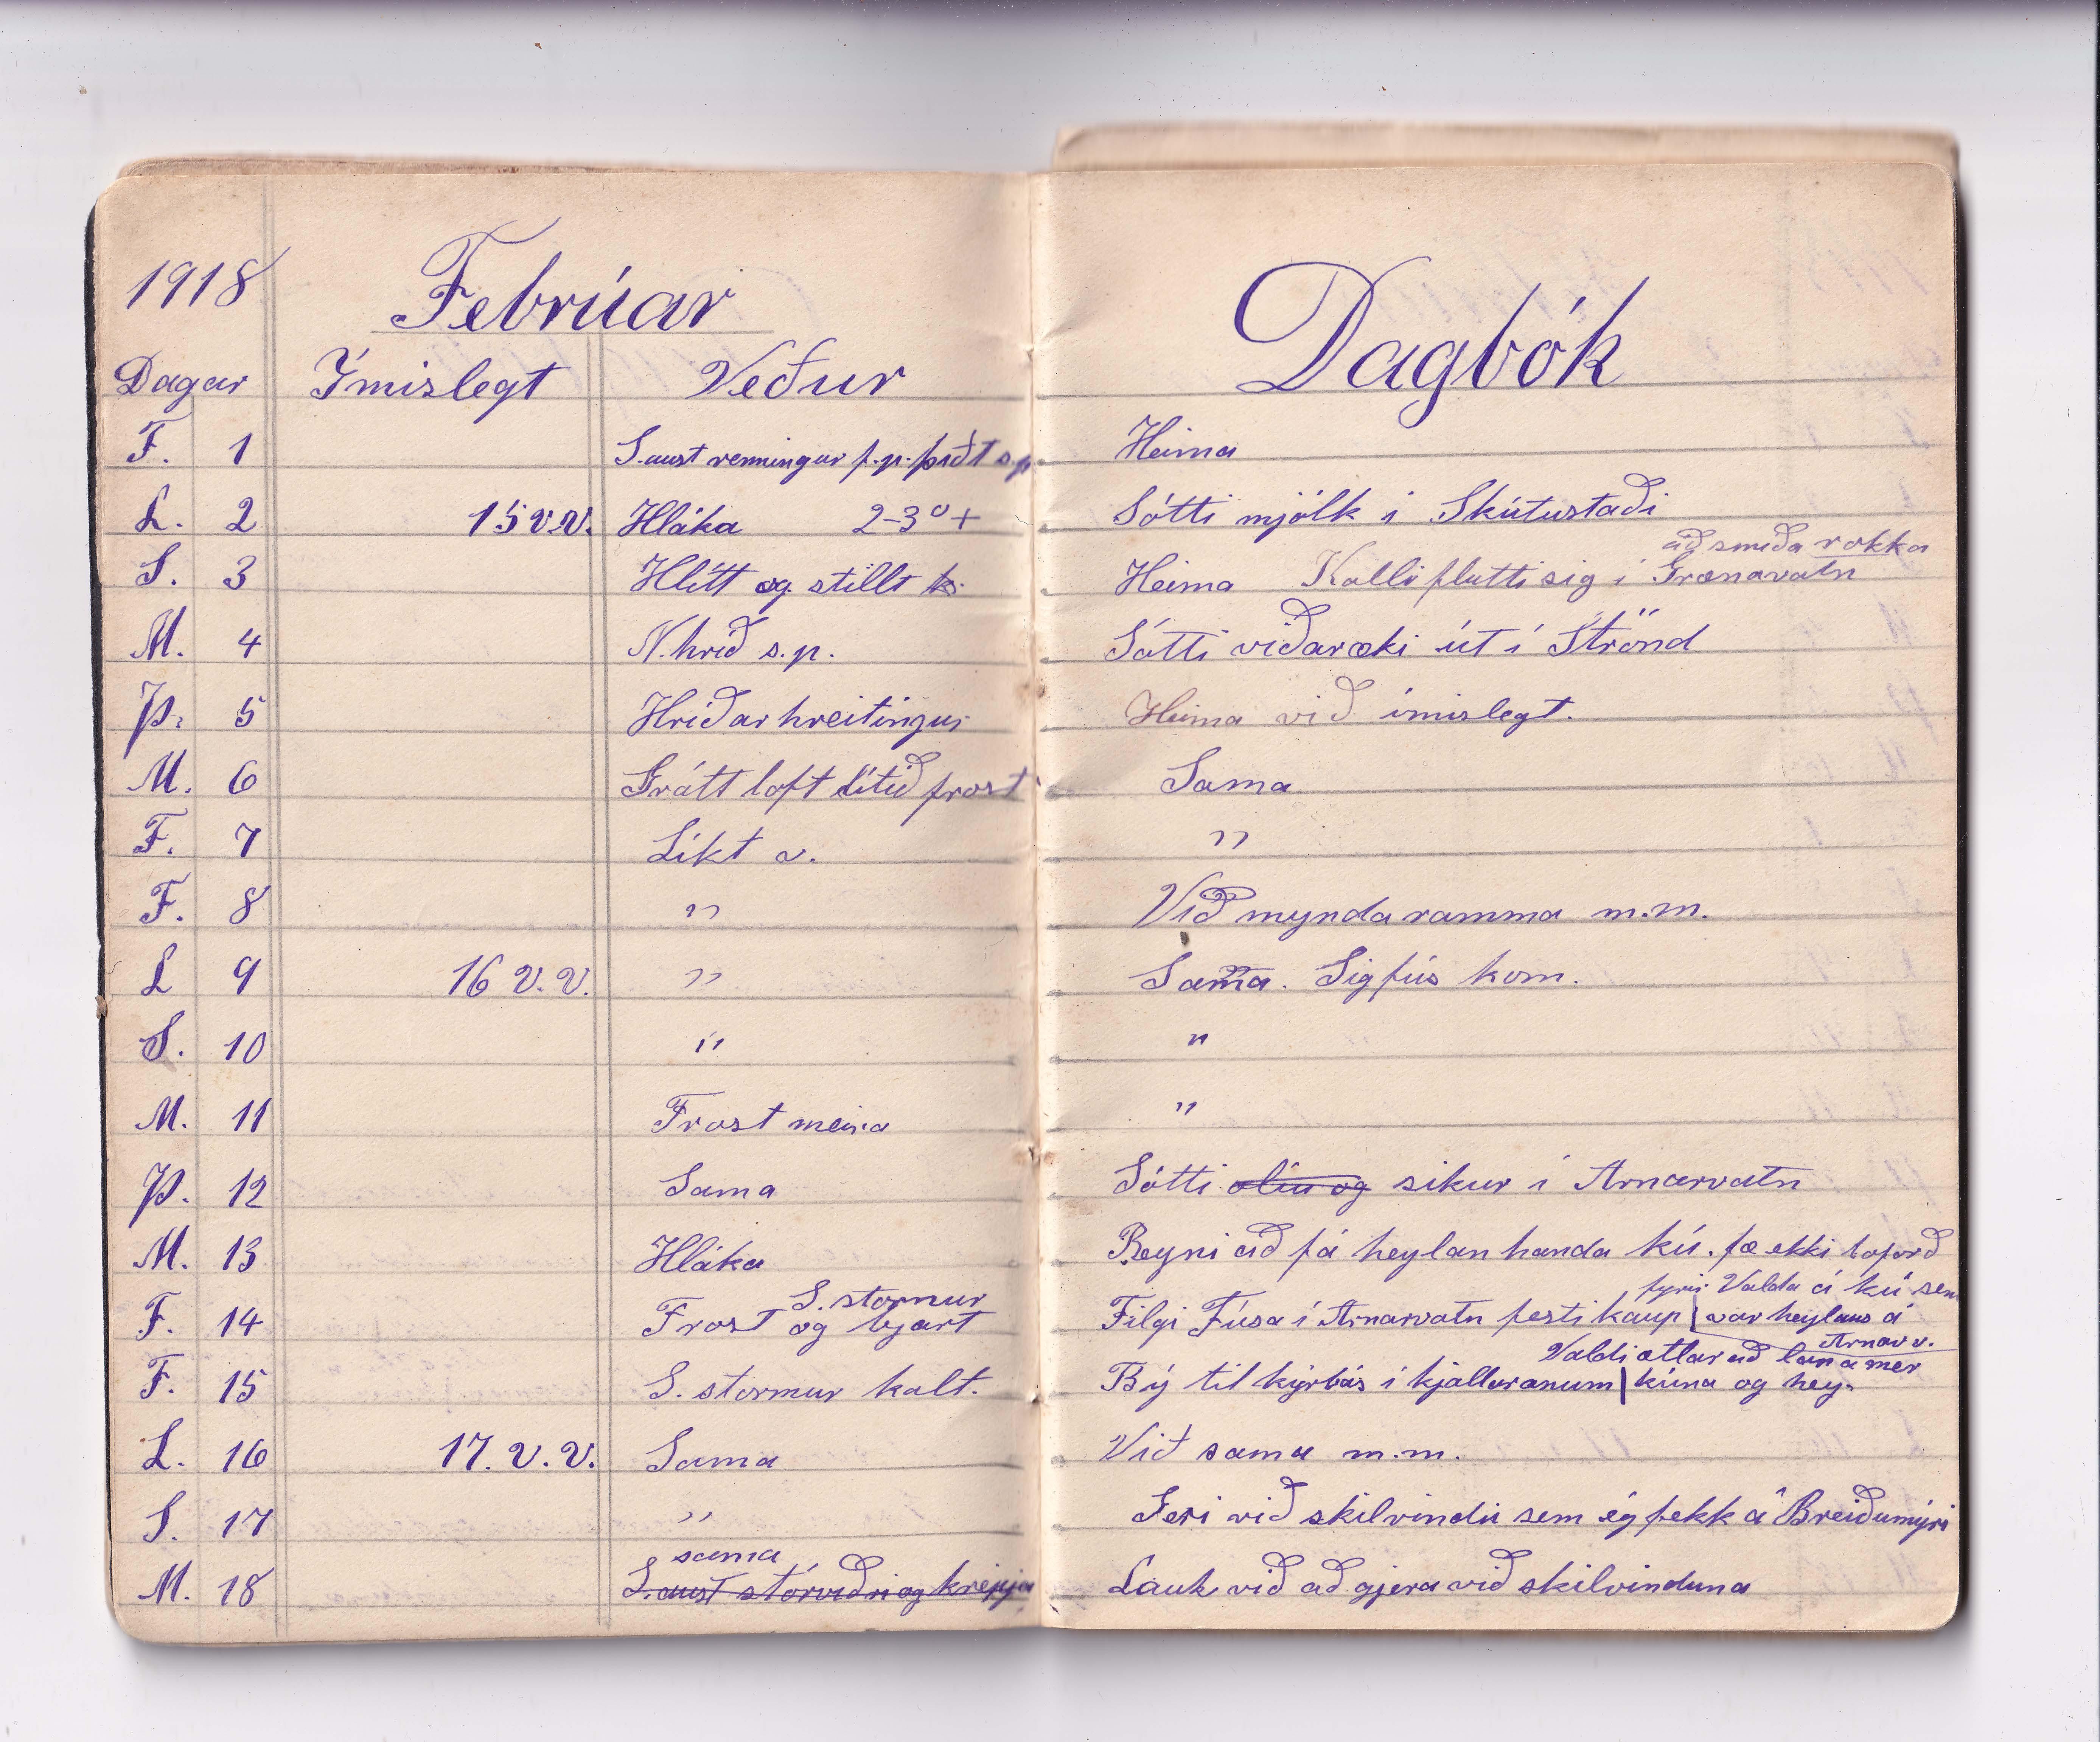 1918 Febrúar
Dagar Ímislegt Veður
F. 1 S.aust renningur f.p. þiðt s.p
L. 2 15 v.v. Hláka 2-3° +
S. 3 Hlítt og stillt
M. 4 N.hríð s.p.
Þ. 5 Hríðarhreitingur
M. 6 Grátt loft lítið frost
F. 7 Líkt v.
F. 8 "
L 9 16 v.v. "
S. 10 "
M. 11 Frost meira
Þ. 12 Sama
M. 13 Hláka
S. stormur
F. 14 Frost og bjart
F. 15 S. stormur kalt.
L. 16 17. v.v. Sama
S. 17 "
sama
M. 18 S.aust stórviðri og krepja
Dagbók
Heima
Sótti mjólk í Skútustaði
að smíða rokka
Heima Kalli flutti sig í Grænavatn
Sótti viðaræki út í Strönd
Heima við ímislegt.
Sama
"
Við myndaramma m.m.
Sama. Sigfús kom.
"
"
Sótti olíu og sikur í Arnarvatn
Reyni að fá heylan handa kú. fæ ekki loforð
fyrir Valda á kú sem
Filgi Fúsa í Arnarvatn festi kaup | var heylaus á
Arnarv.
Valdi ætlar að lána mér
Bý til kýrbás í kjallaranum | kúna og hey.
Við sama m.m.
Geri við skilvindu sem ég fekk á Breiðumýri
Lauk við að gjera við skilvinduna